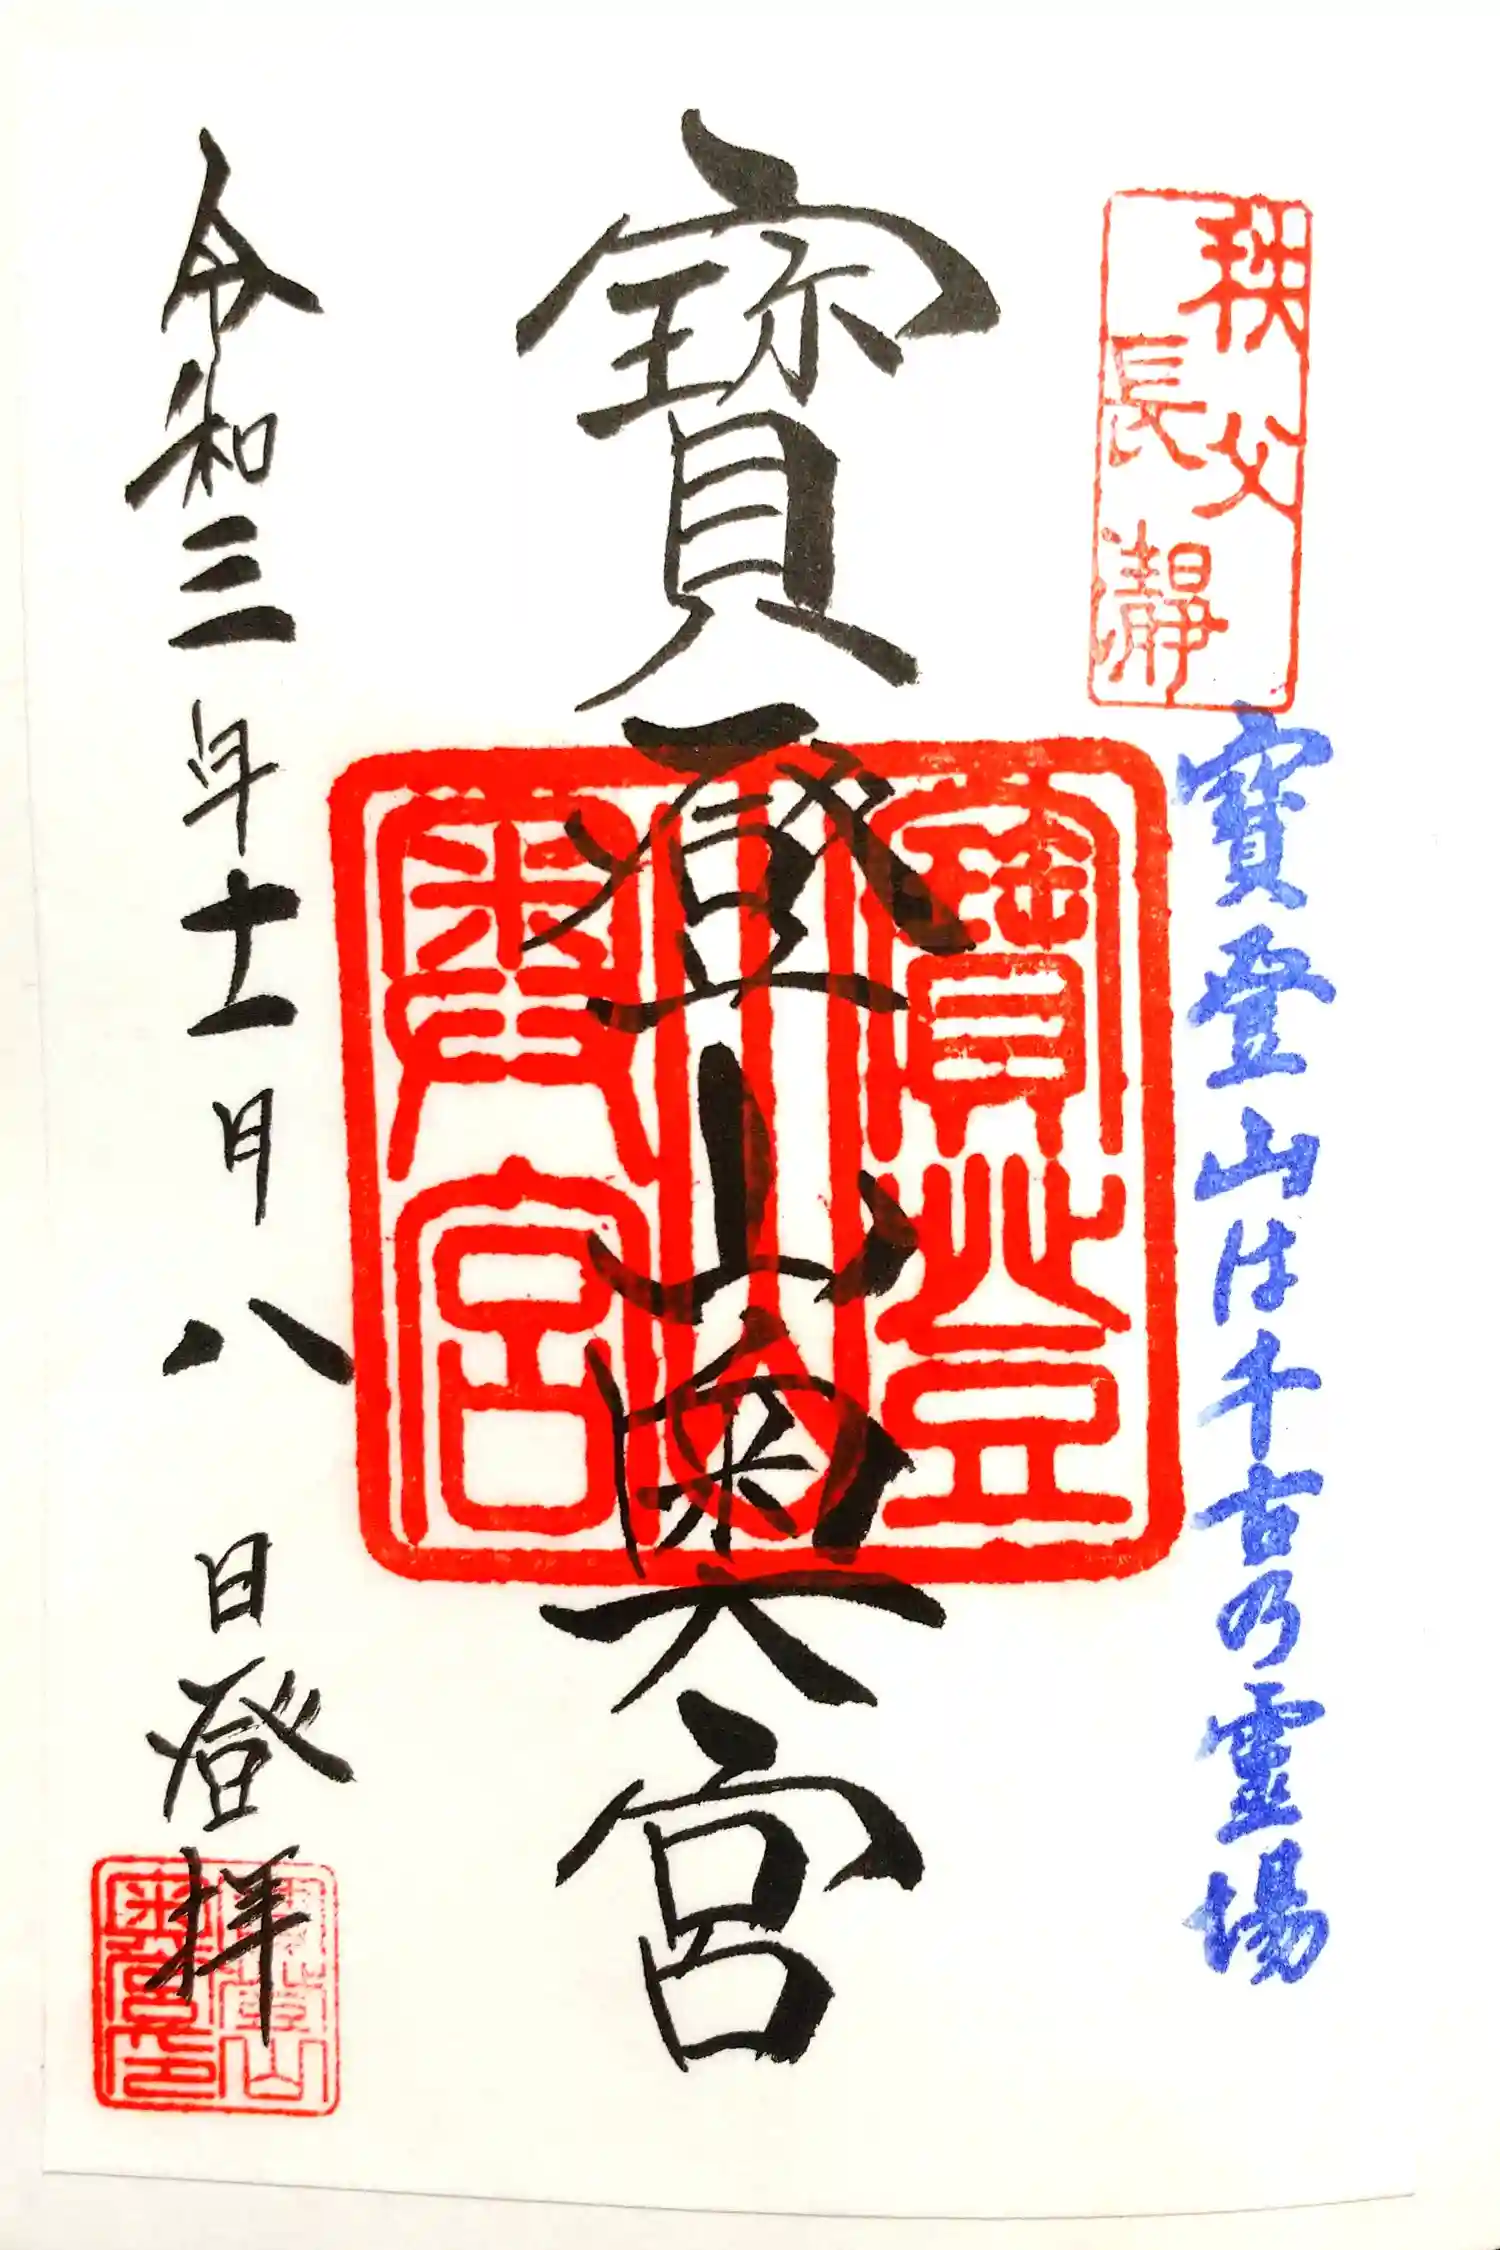 秩父
長瀞
寶登山は千古乃靈場
寶登山奥宮
寶登
山
奥宮
令和三年十一月八日登拝
寶登山
奥宮之印